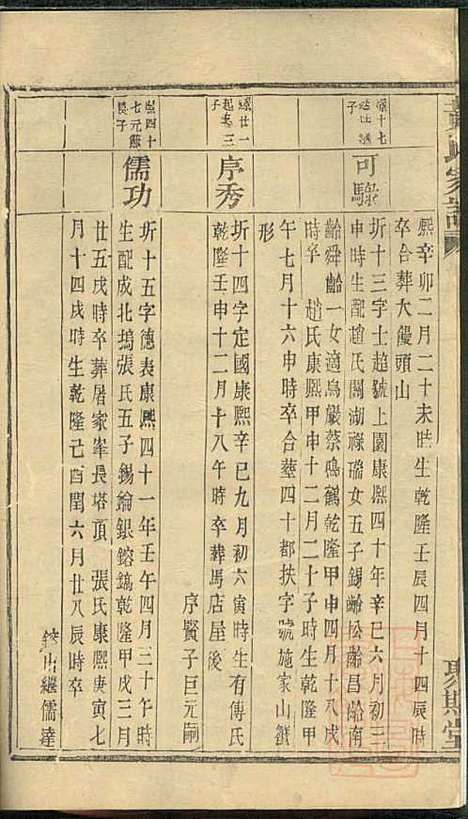 熙辛卯二月二十未時生乾隆壬辰四月十四辰時
卒合葬大饅頭山
可
圻十三字士超號上園康熙四十年辛巳六月初三
申時生配趙氏閣湖祿瑞女五子錫齡松齡昌齡南
齡舜齡一女適烏嚴蔡鳴鶴乾隆甲申四月十八戌
時卒 趙氏康熙甲申十二月二十子時生乾隆甲
午七月十六申時卒合葬四十都扶字號施家山蟹
形
序秀
圻十四字定國康熙辛巳九月初六寅時生有傅氏
乾隆壬申十二月十八午時卒葬馬店屋後
序賢子巨元嗣
儒功
圻十五字德表康熙四十一年壬午四月三十午時
生配成北塢張氏五子錫鑰銀鎔鎬乾隆甲戌三月
廿五戌時卒葬屠家峯長塔頂 張氏康熙庚寅七
月十四戌時生乾隆己酉閏六月廿八辰時卒
出繼儒達
聚斯堂